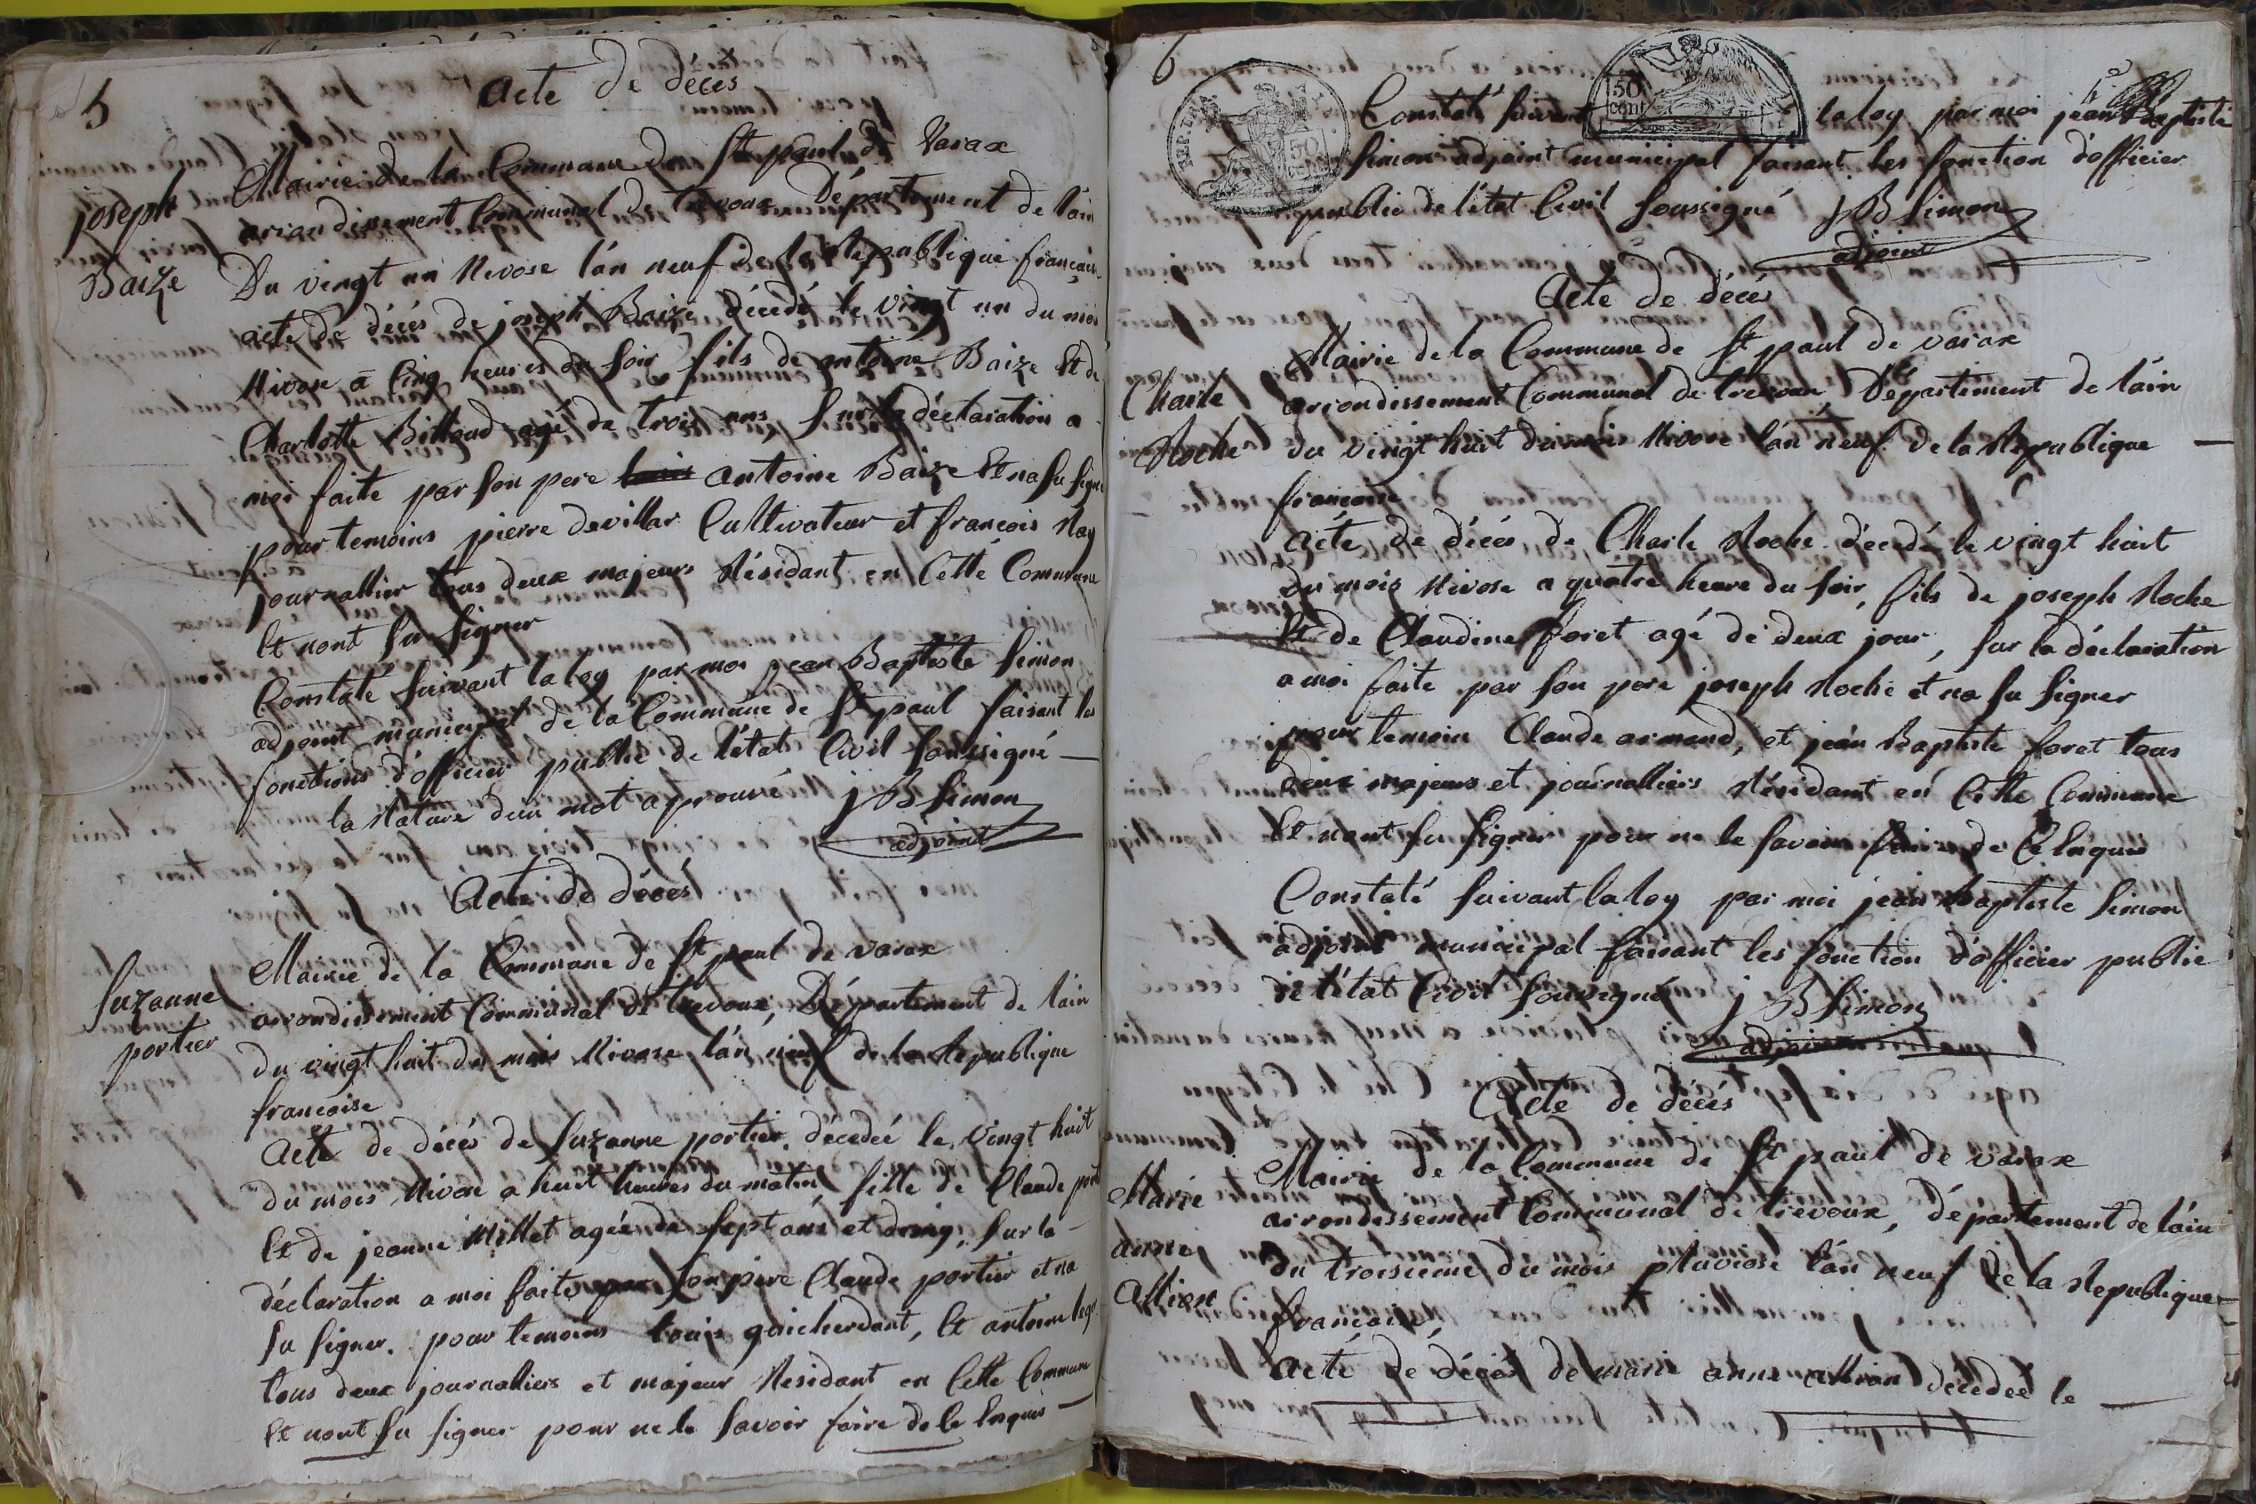 5
acte de déces
joseph
Baize
Mairie de la Commune de St paul de Varax
arrondissement Communal de trevoux Département de lain
Du vingt un Nivose lán neuf de la Republique francaise
acte de décés de joseph Baize décedé le vingt un du mois
Nivose a Cinq heures du soir fils de antoine Baize Et de
Charlotte Billoud agé de trois ans, sur la déclaration a
moi faite par son pere antoine Baize Et na su signer
pour temoins pierre devillar Cultivateur et francois Nay
journallier tous deux majeurs Résidant en Cette Commune
Et nont su signer
Constaté suivant la loy par moi jean Baptiste Simon
adjoint municipal de la Commune de St paul faisant les
fonctions d'officier public de l'état Civil soussigné
la Rature dun mot aprouvé j B Simon
adjoint
Acte de décés
suzanne
portier
Mairie de la Commune de St paul de varax
arrondissement Communal de trevoux, Département de lain
du vingt huit du mois Nivose lán neuf de la Republique
francoise
Acte de décés de suzanne portier décedée le vingt huit
du mois Nivose a huit heures du matin, fille de Claude port
Et de jeanne Millet agée de sept ans et demy, sur la
déclaration a moi faite par son pere Claude portier et na
su signer. pour temoins Louis guicherdant, Et antoine
tous deux journalliers et majeur Residant en Cette Commune
Et nont su signer pour ne le savoir faire de Ce Enquis
6
REP. FRA.
50 C.
50 cent
Constaté suivant la loy par moi jean Baptiste
Simon adjoint municipal faisant les fonction d'officier
public de l'état Civil soussigné j B Simon
adjoint
Acte de décés
Charle
Roche
Mairie de la Commune de St paul de varax
arrondissement Communal de trevoux Département de láin
du vingt huit du mois Nivose lán neuf de la Republique
francoise
Acte de décés de Charle Roche décedé le vingt huit
du mois Nivose a quatre heure du soir, fils de joseph Roche
Et de Claudine foret agé de deux jour, sur la déclaration
a moi faite par son pere joseph Roche et na su signer
pour temoin Claude armand, et jean Baptiste foret tous
deux majeurs et journalliers Résidant en Cette Commune
Et nont su signer pour ne le savoir faire de Ce Enquis
Constaté suivant la loy par moi jean Baptiste Simon
adjoint municipal faisant les fonction d'officier public
de l'état Civil soussigné j B Simon
adjoint
Acte de décés
Marie
anne
Allion
Mairie de la Commune de St paul de varax
arrondissement Communal de trevoux, département de láin
du troisieme du mois pluviose lán neuf de la Republique
francaise,
Acte de décés de marie anne allion décedée le